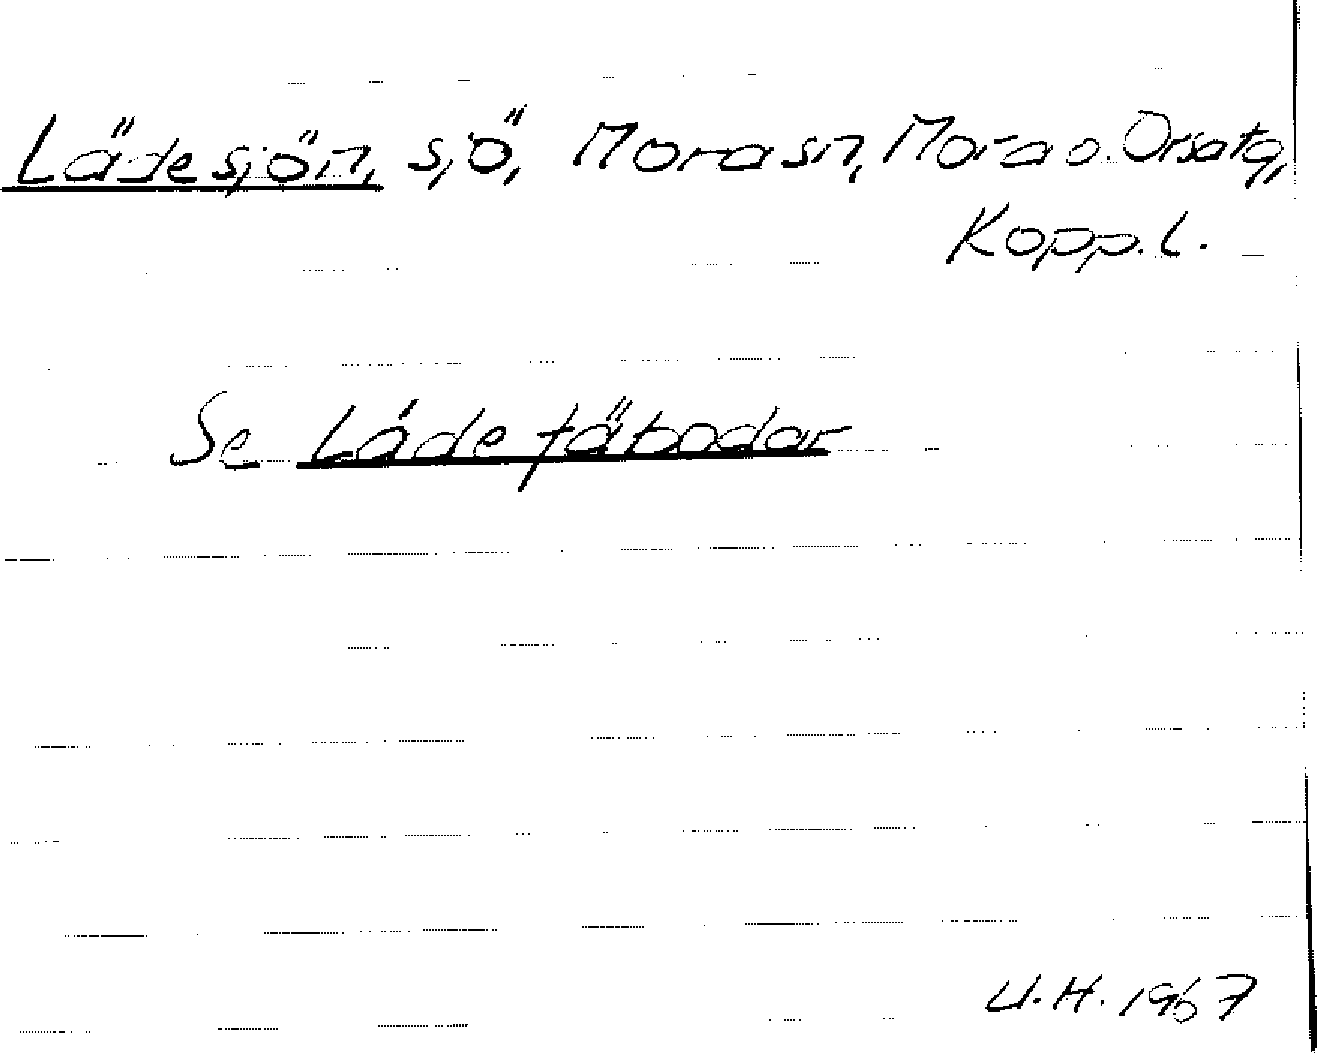 Lädesjön, sjö, Mora sn, Mora o. Orsa tg,
Kopp. l.
Se Låde fäbodar
U.H. 1967